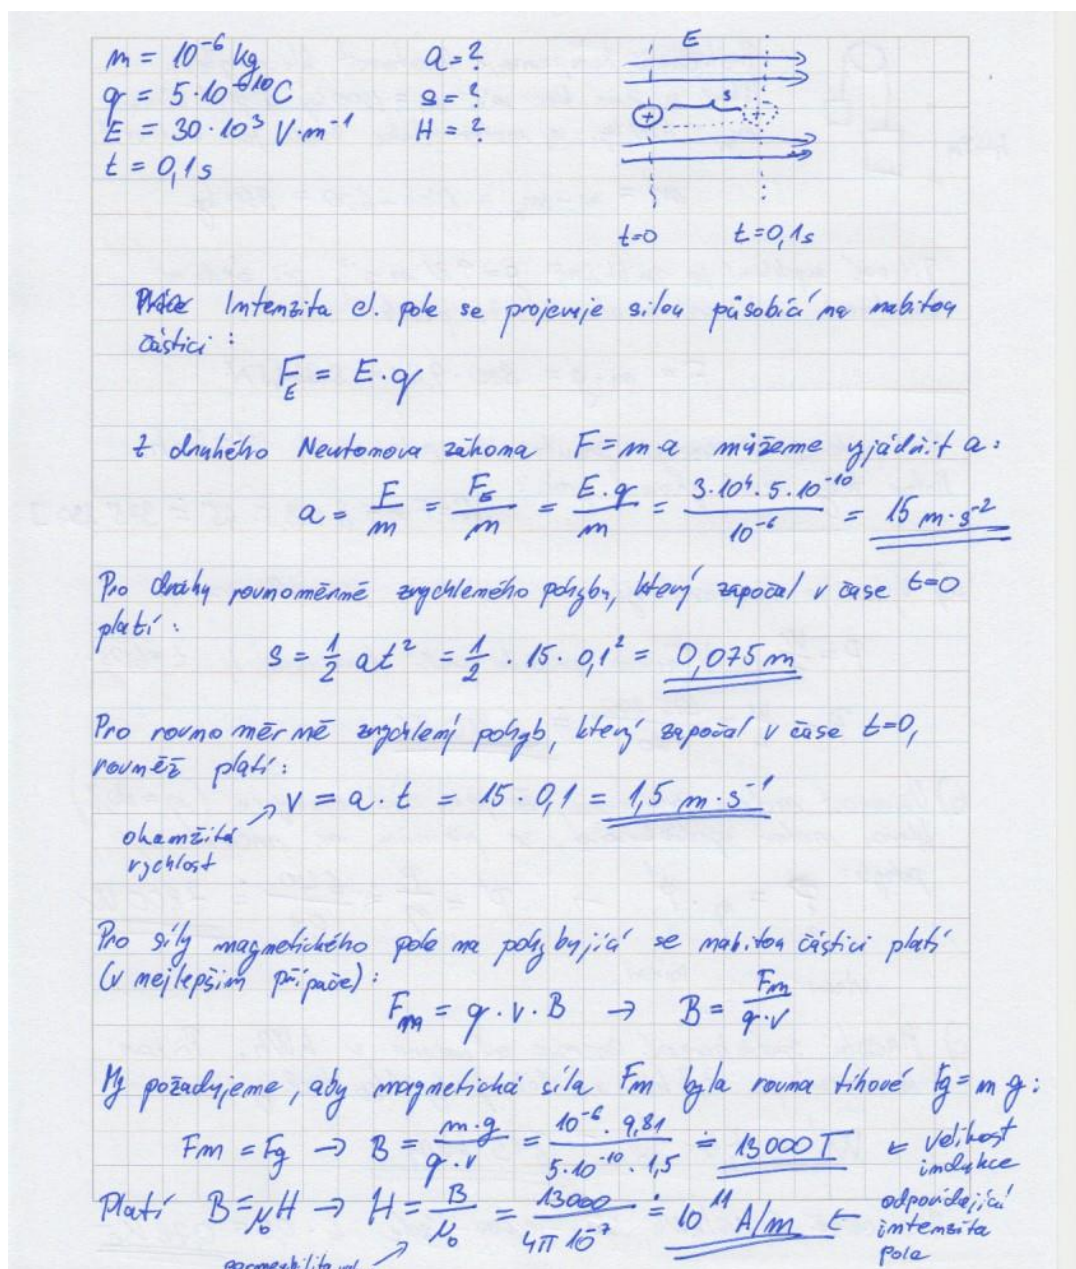 m = 10⁻⁶ kg a = ?
q = 5·10⁻¹⁰ C s = ?
E = 30·10³ V·m⁻¹ H = ?
t = 0,1s
E
s
+ +
t=0 t=0,1s
Intenzita el. pole se projevuje silou působící na nabitou
částici :
F_E = E·q
Z druhého Newtonova zákona F = m·a můžeme vyjádřit a:
a = F/m = F_E/m = E·q/m = 3·10⁴·5·10⁻¹⁰/10⁻⁶ = 15 m·s⁻²
Pro dráhy rovnoměrně zrychleného pohybu, který započal v čase t=0
platí :
s = 1/2 at² = 1/2 · 15 · 0,1² = 0,075 m
Pro rovnoměrně zrychlený pohyb, který započal v čase t=0,
rovněž platí :
v = a · t = 15 · 0,1 = 1,5 m·s⁻¹
okamžitá
rychlost
Pro síly magnetického pole na pohybující se nabitou částici platí
(v nejlepším případě) :
F_m = q · v · B → B = F_m/q·v
My požadujeme, aby magnetická síla Fm byla rovna tíhové Fg = m g :
Fm = Fg → B = m·g/q·v = 10⁻⁶ · 9,81/5·10⁻¹⁰ · 1,5 ≐ 13000 T ← velikost
indukce
Platí B = μ₀H → H = B/μ₀ = 13000/4π 10⁻⁷ ≐ 10¹¹ A/m ← odpovídající
intenzita
pole